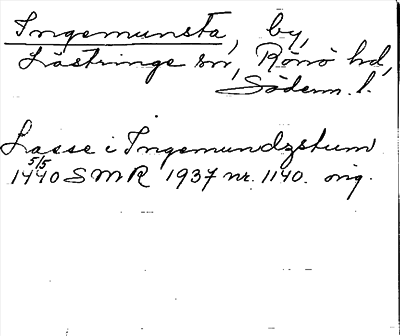 Ingemunsta, by,
Lästringe sn, Rönö hd,
Söderm. l.
Lasse i Ingemundzstum
5/5
1440 SMR 1937 nr. 1140. orig.